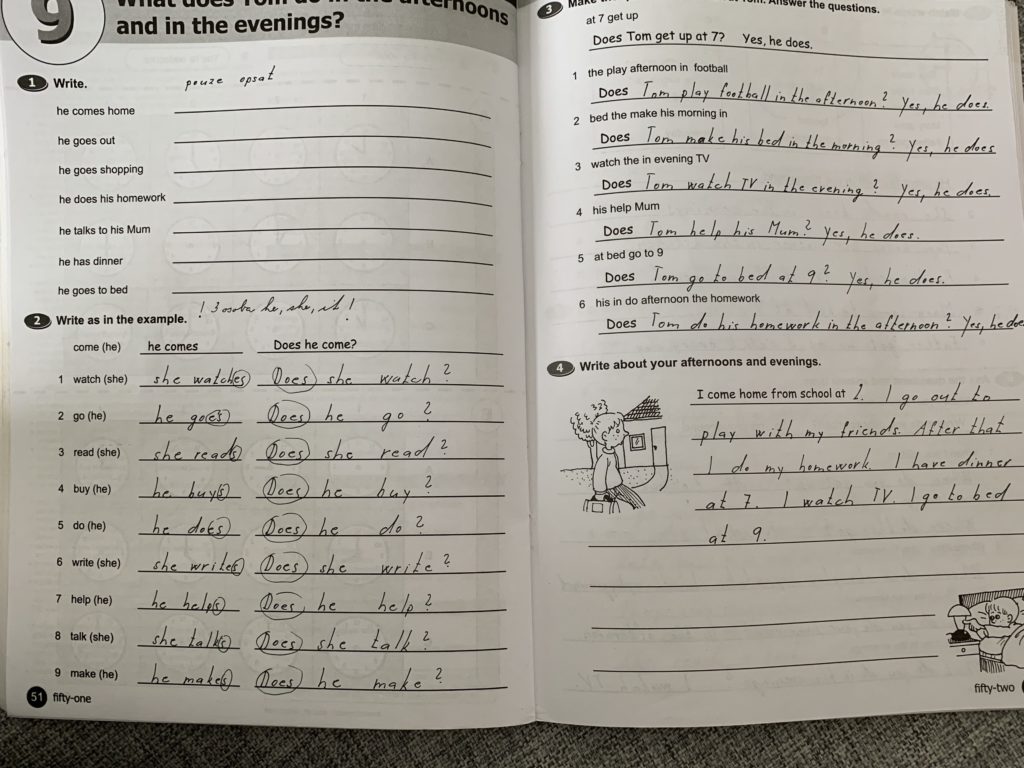 9
What does Tom do in the afternoons
and in the evenings?
1 Write. pouze opsat
he comes home
he goes out
he goes shopping
he does his homework
he talks to his Mum
he has dinner
he goes to bed
! 3 osoba he, she, it !
2 Write as in the example.
come (he) he comes Does he come?
1 watch (she) she watches Does she watch?
2 go (he) he goes Does he go?
3 read (she) she reads Does she read?
4 buy (he) he buys Does he buy?
5 do (he) he does Does he do?
6 write (she) she writes Does she write?
7 help (he) he helps Does he help?
8 talk (she) she talks Does she talk?
9 make (he) he makes Does he make?
51 fifty-one
3 Answer the questions.
at 7 get up
Does Tom get up at 7? Yes, he does.
1 the play afternoon in football
Does Tom play football in the afternoon? Yes, he does.
2 bed the make his morning in
Does Tom make his bed in the morning? Yes, he does
3 watch the in evening TV
Does Tom watch TV in the evening? Yes, he does.
4 his help Mum
Does Tom help his Mum? Yes, he does.
5 at bed go to 9
Does Tom go to bed at 9? Yes, he does.
6 his in do afternoon the homework
Does Tom do his homework in the afternoon? Yes, he does
4 Write about your afternoons and evenings.
I come home from school at 2. I go out to
play with my friends. After that
I do my homework. I have dinner
at 7. I watch TV. I go to bed
at 9.
fifty-two